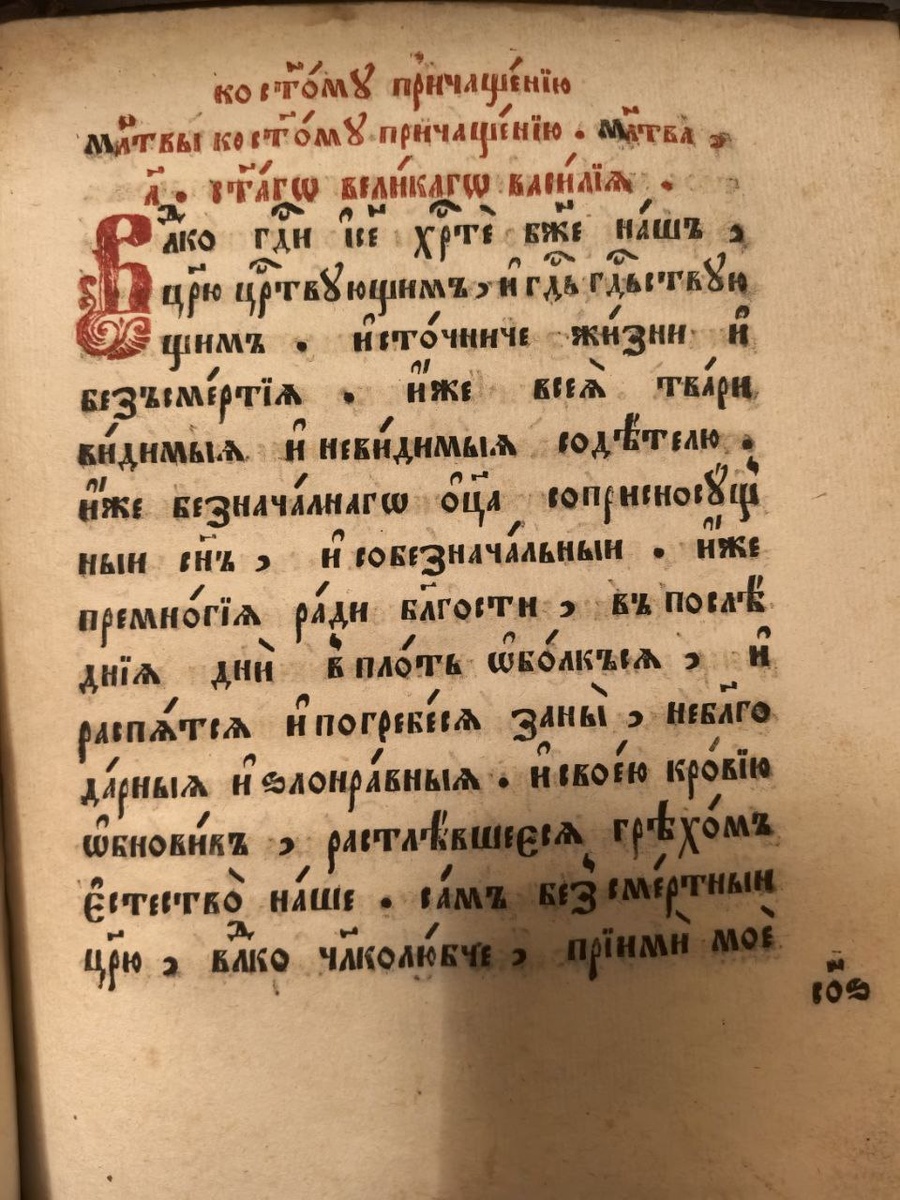 ко ст҃о́мꙋ причаще́нїю
мл҃твы ко ст҃о́мꙋ причаще́нїю . мл҃тва ,
а҃ . ст҃а́гѡ вели́кагѡ васи́лїѧ .
Влⷣко гдⷭ҇и і҆с҃е хрⷭ҇тѐ бж҃е на́шъ ,
цр҃ю црⷭ҇твꙋющимъ , и҆ гдⷭ҇ь гдⷭ҇ьствꙋю
щимъ . и҆сто́чниче жи́зни и҆
безъсме́ртїѧ . и҆́же всеѧ̀ тва́ри
ви́димыѧ и҆ неви́димыѧ содѣ́телю .
и҆́же безнача́лнагѡ ѻ҆ц҃а соприсносꙋ́щ
ныи сн҃ъ , и҆ собезнача́льныи . и҆́же
премно́гїѧ ра́ди бл҃гости , въ послѣ́
днїѧ дни̑ в̾ пло́ть ѡ҆бо́лкъсѧ , и҆
распѧ́тсѧ и҆ погребе́сѧ за ны̀ , небл҃го
да́рныѧ и҆ ѕлонра́вныѧ . и҆ свое́ю кро́вїю
ѡ҆бнови́въ , растлѣ́вшеесѧ грѣхо́мъ
є҆стество̀ на́ше . са́мъ без̾сме́ртныи
цр҃ю , влⷣко чл҃колю́бче , прїими̑ моѐ
со҃ѕ